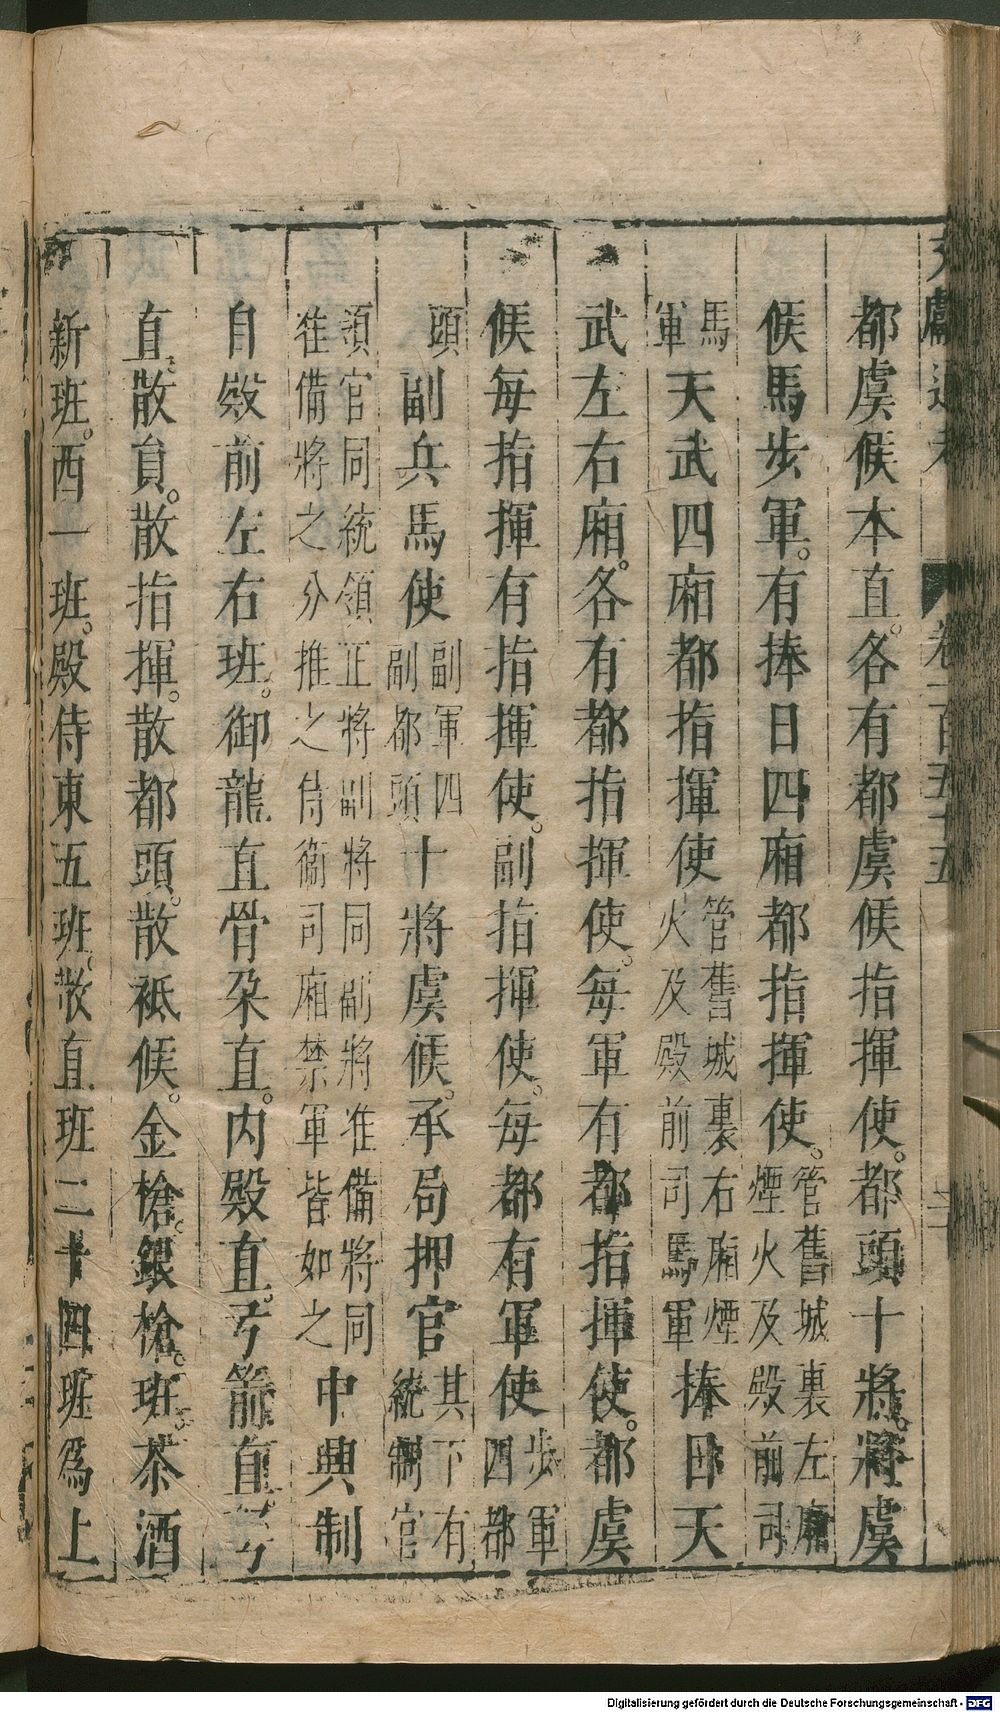 都虞候本直。各有都虞候指揮使。都頭十將。將虞
候馬步軍。有捧日四廂都指揮使。管舊城裏左廂煙火及殿前司
馬軍天武四廂都指揮使管舊城裏右廂煙火及殿前司馬軍捧日天
武左右廂。各有都指揮使。每軍有都指揮使。都虞
候每指揮有指揮使。副指揮使。每都有軍使步軍四都
頭副兵馬使副軍四副都頭十將虞候。承局押官其下有統制官
領官同統領正將副將同副將准備將同准備將之分推之侍衞司廂禁軍皆如之中興制
自殿前左右班。御龍直骨朶直。内殿直。弓箭直。弩
直。散員。散指揮。散都頭。散祗候。金槍。銀槍。班。茶酒
新班。西一班。殿侍東五班。散直班二十四班爲上
文獻通考 卷一百五十五 二
Digitalisierung gefördert durch die Deutsche Forschungsgemeinschaft - DFG